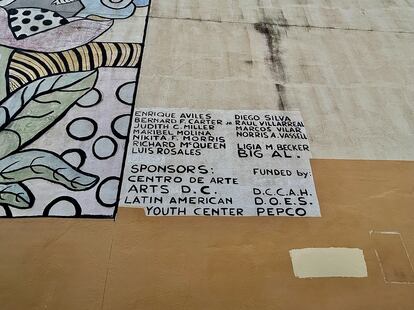 ENRIQUE AVILES
BERNARD F. CARTER JR.
JUDITH C. MILLER
MARIBEL MOLINA
NIKITA F. MORRIS
RICHARD McQUEEN
LUIS ROSALES
DIEGO SILVA
RAUL VILLARREAL
MARCOS VILAR
NORRIS A. VASSELL
LIGIA M BECKER
BIG AL.
SPONSORS:
CENTRO DE ARTE
ARTS D.C.
LATIN AMERICAN
YOUTH CENTER
FUNDED by:
D.C.C.A.H.
D.O.E.S.
PEPCO